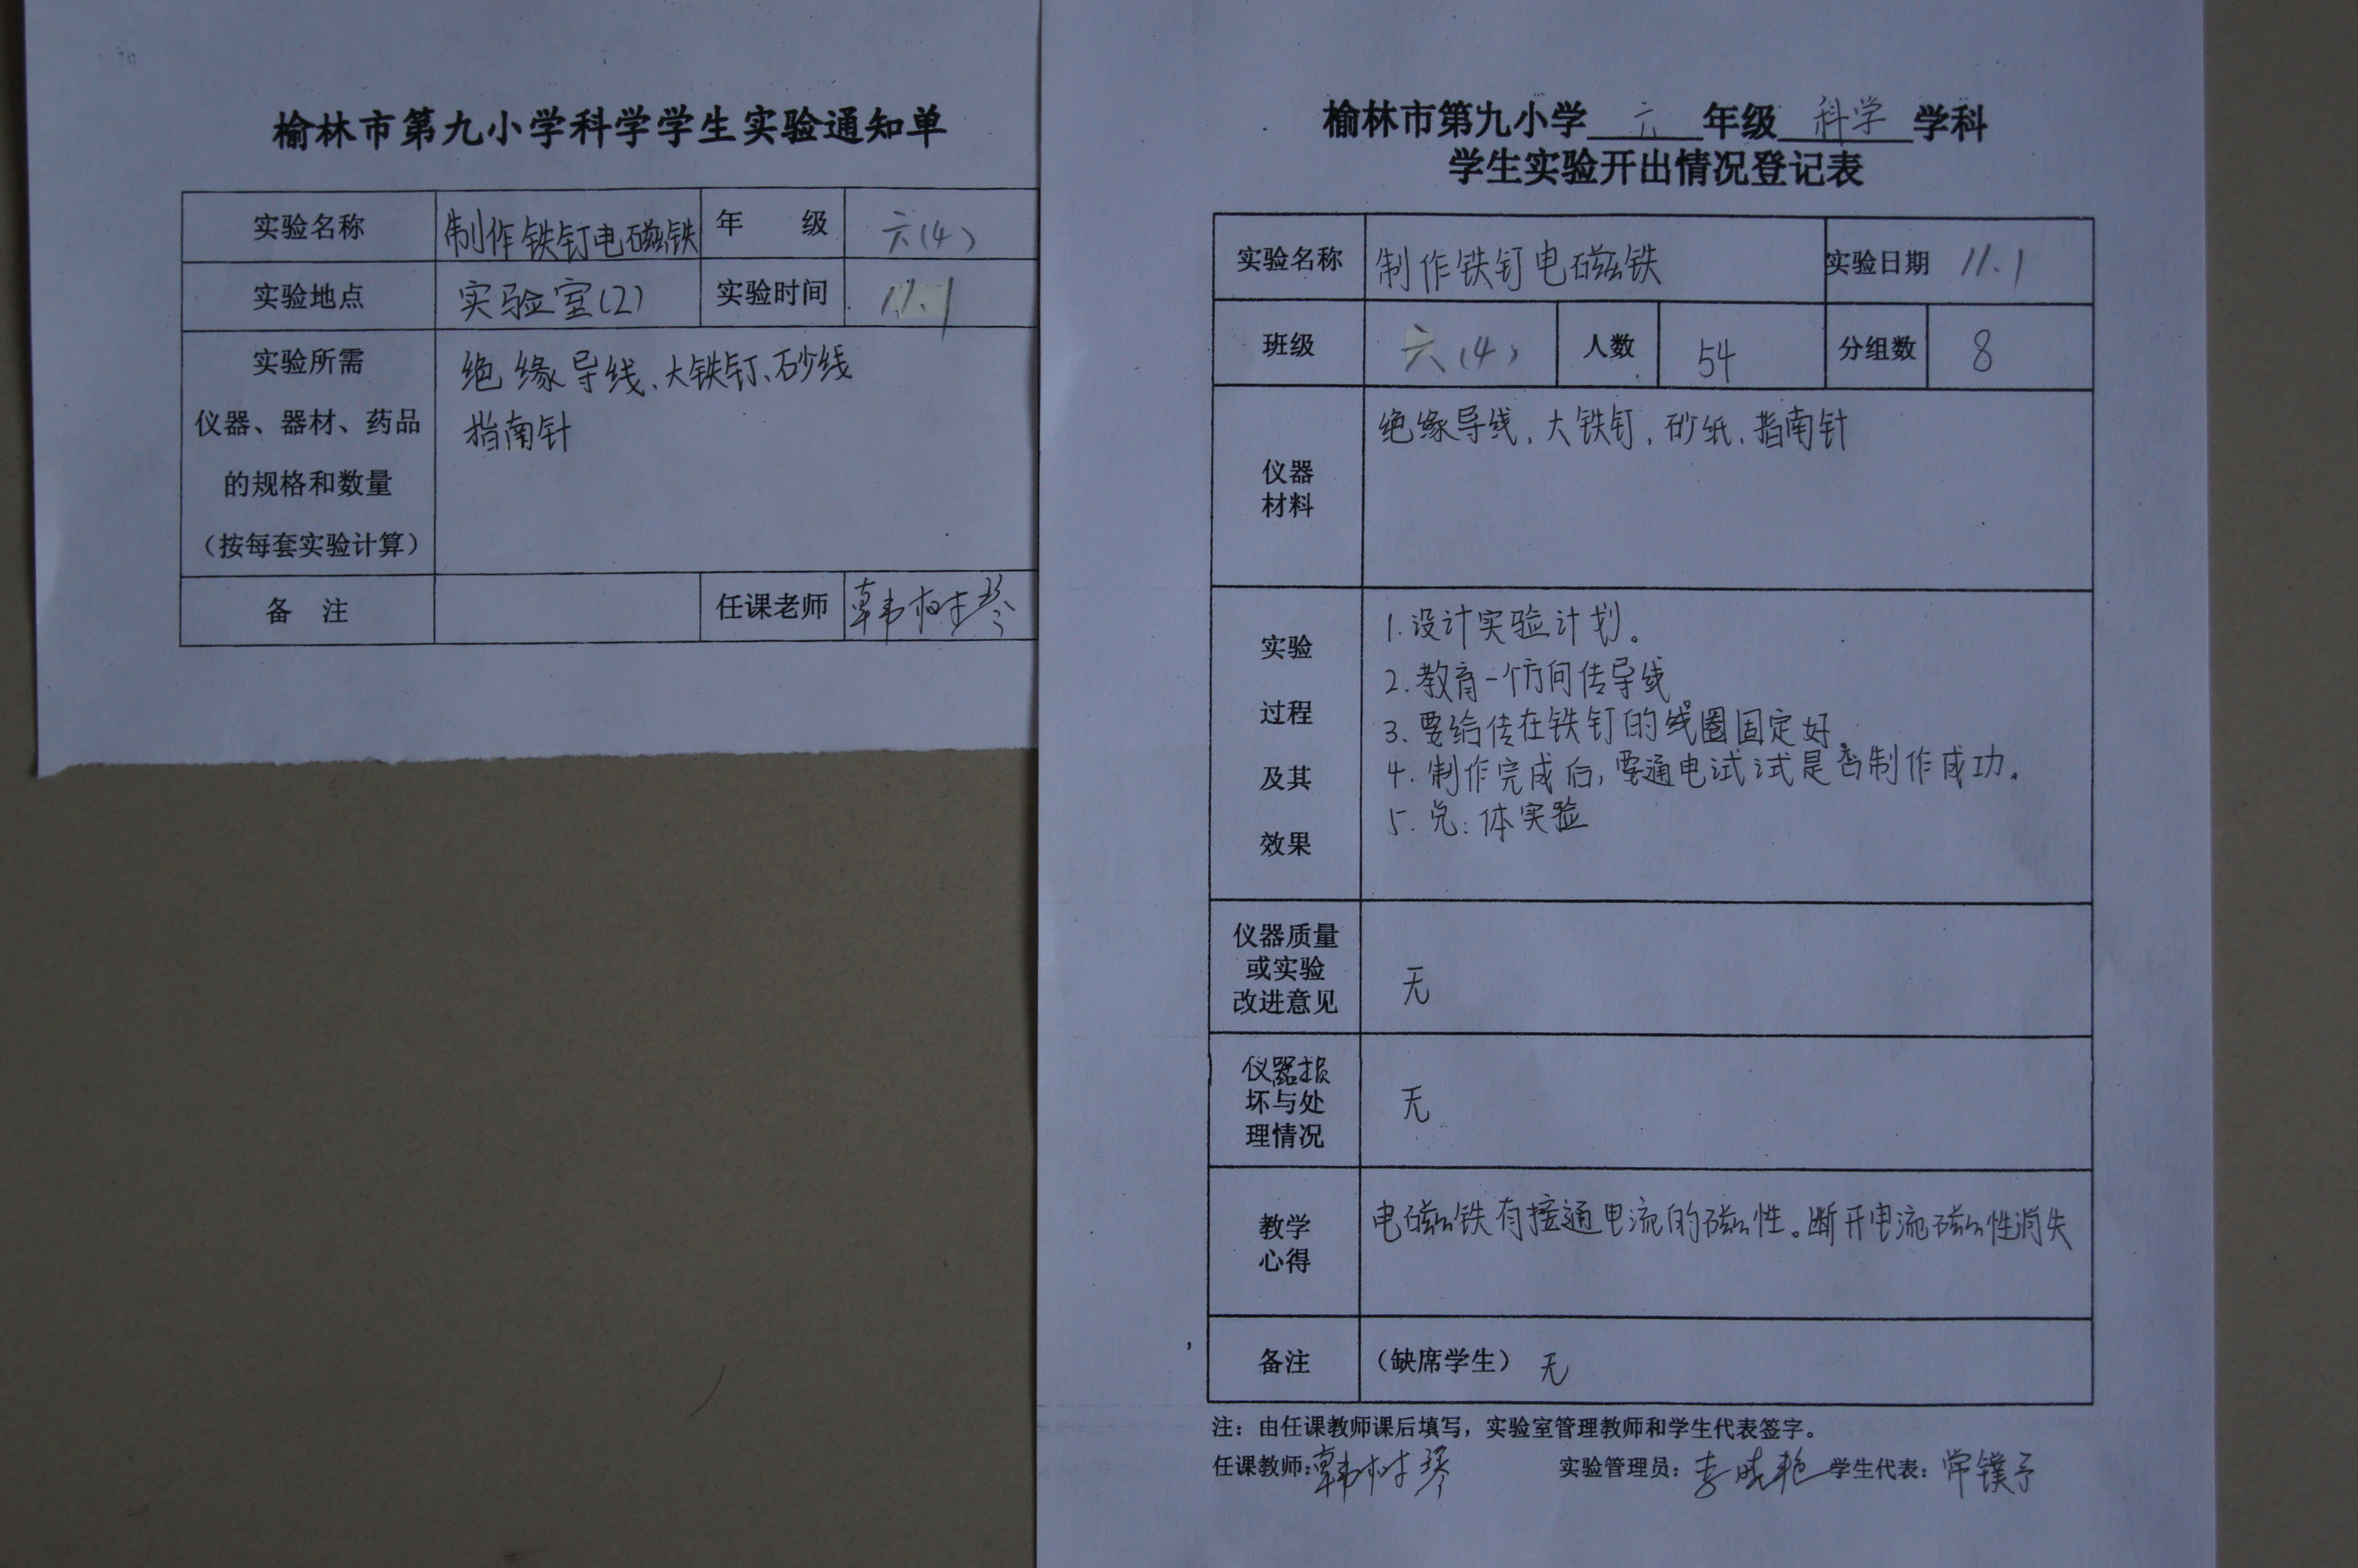 榆林市第九小学科学学生实验通知单
实验名称 制作铁钉电磁铁 年 级 六(4)
实验地点 实验室(2) 实验时间 11.1
实验所需
仪器、器材、药品
的规格和数量
(按每套实验计算)
绝缘导线、大铁钉、砂线
指南针
备 注 任课老师 韩树琴
榆林市第九小学 六 年级 科学 学科
学生实验开出情况登记表
实验名称 制作铁钉电磁铁 实验日期 11.1
班级 六(4) 人数 54 分组数 8
仪器
材料
绝缘导线、大铁钉、砂纸、指南针
实验
过程
及其
效果
1.设计实验计划。
2.教育一个方向传导线。
3.要给传在铁钉的线圈固定好
4.制作完成后,要通电试试是否制作成功。
5. 体实验
仪器质量
或实验
改进意见
无
仪器损
坏与处
理情况
无
教学
心得
电磁铁有接通电流的磁性。断开电流磁性消失
备注 (缺席学生) 无
注:由任课教师课后填写,实验室管理教师和学生代表签字。
任课教师:韩树琴 实验管理员:李晓艳 学生代表:常镤予